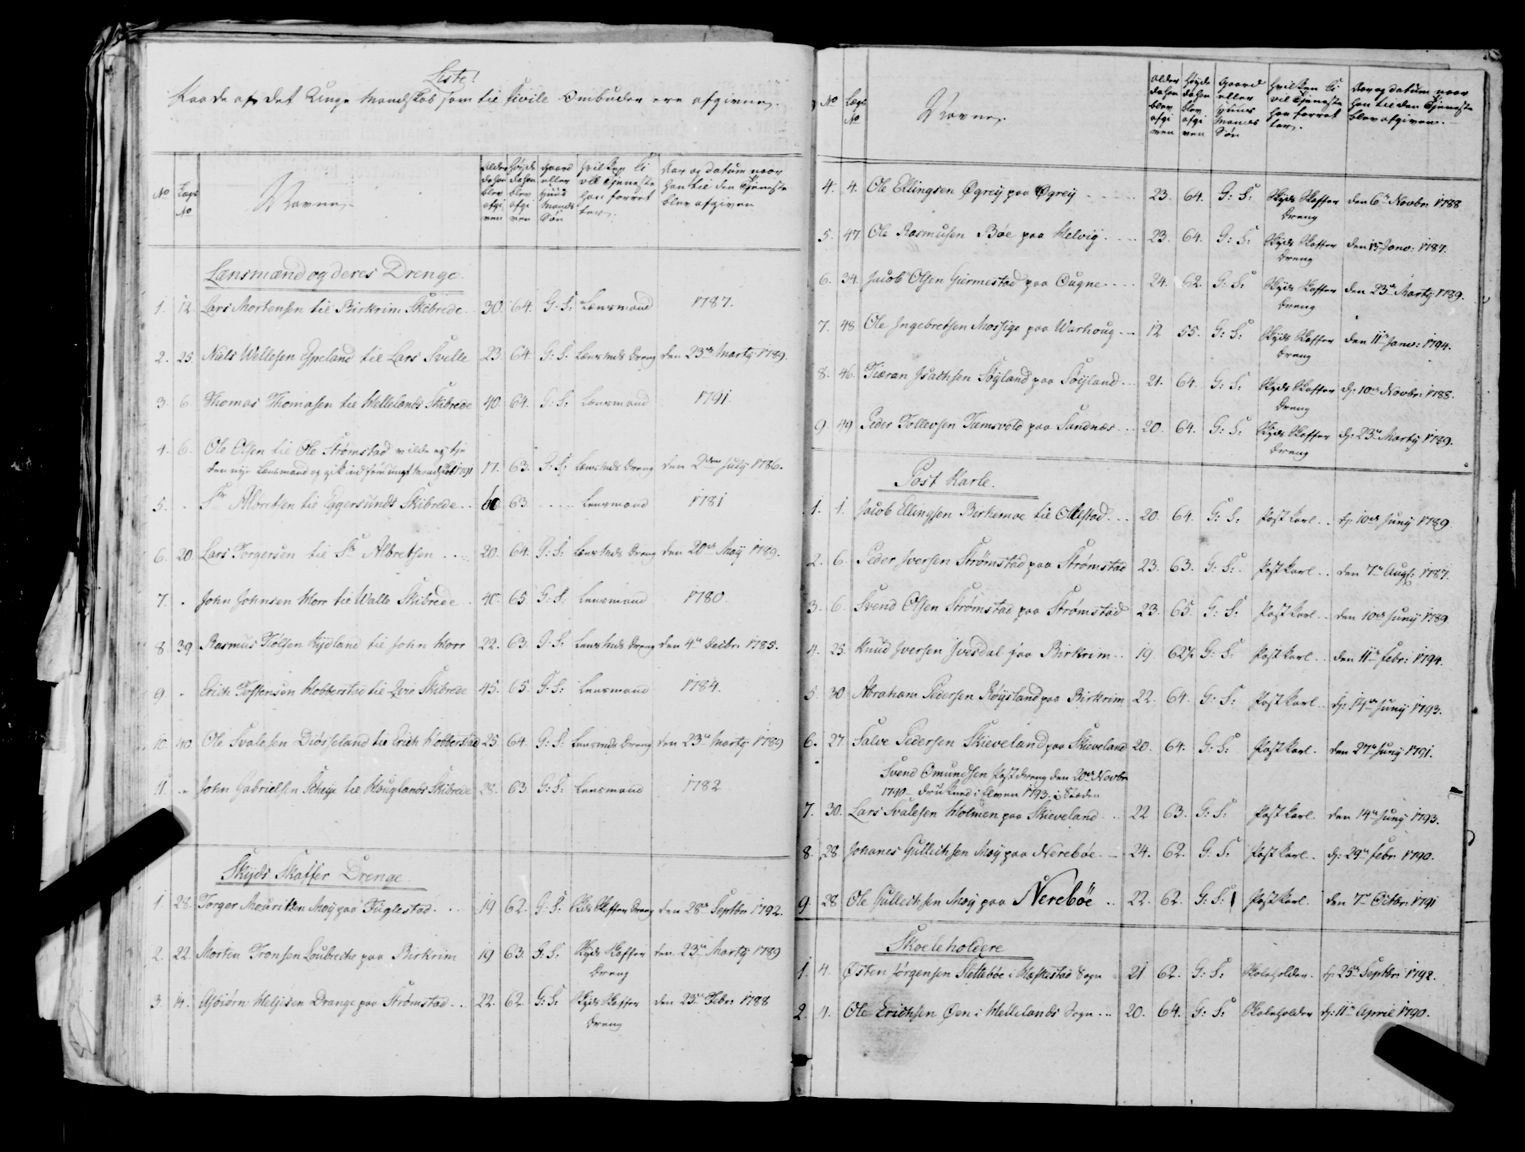 Liste!
Paa de af det Unge Mandskab som til Civile Ombuder ere afgivne.
No Lægs No Navne. Alder da han blev afgiven Høyde da han blev afgiven Gaard eller Huusmands Søn Hvilken Civil Tjeneste han forretter. Aar og datum naar han til den Tjeneste blev afgiven
Lænsmænd og deres Drenge.
1. 12. Lars Mortensen til Birkrim Skibrede. 30. 64. G: S: Lensmand 1787.
2. 25 Niels Wellesen Espeland til Lars Svelle 23 64. G: S. Lensmds Dreng den 23de Marty 1789.
3. 6. Thomas Thomasen til Hellelands Skibrede 40. 64. G: S: Lensmand 1791.
4. 6. Ole Olsen til Ole Strømstad vilde ey tje
den nye Lensmand og gik ind for ungt Mandskab 1791 17. 63. G: S: Lensmds Dreng den 2den July 1786.
5. - Sr Albretsen til Eggersunds Skibrede.. 60 63 ..... Lensmand 1781
6. 20 Lars Torgersen til Sr Albretsen .... 20. 64. G: S: Lensmds Dreng den 20de May 1789.
7. - John Johnsen Horr til Walle Skibrede.. 40. 65. G: S. Lensmand 1780.
8. 39 Rasmus Tolfsen Rydland til John Horr 22. 63. G: S: Lensmds Dreng den 4de Decbr: 1785.
9 - Erich Torstensen Hobberstad til Zoie Skibrede 45. 65. G: S: Lensmand 1784.
10. 40. Ole Svalesen Diösseland til Erich Hobberstad 25. 64. G: S: Lensmds Dreng den 23de Marty 1789
11. - John Gabrielsen Scheije til Houglands Skibrede 28. 63 G: S: Lensmand 1782
Skyds Skaffer Drenge.
1. 28. Torger Mauritzen Moy paa Fuglestad. ... 19 62. G: S: Skds Skaffer Dreng den 28de Septbr 1792.
2. 22. Morten Tronsen Loubrecke paa Birkrim 19 63. G: S: Skyds Skaffer den. 23de Marty 1789
Dreng
3. 14. Asbiørn Helgesen Drange paa Strømstad.. 22. 62. G: S: Skyds Skaffer den 23de Febr: 1788
Dreng
No Lægs No Navne. Alder da han blev afgiven Høyde da han blev afgiven Gaard eller Huusmands Søn Hvilken Civil Tjeneste han forretter. Aar og datum naar han til den Tjeneste blev afgiven.
4. 4. Ole Ellingsen Øgrey paa Øgrey ..... 23. 64. G: S: Skyds Skaffer den 6te Novbr: 1788
Dreng
5. 47 Ole Rasmusen Bøe paa Helvig. .... 23. 64. G: S: Skyds Skaffer den 15 Janv: 1787.
Dreng
6. 34. Jacob Olsen Giermestad paa Ougne.... 24. 62. G: S: Skyds Skaffer den 23de Marty 1789.
Dreng
7. 48 Ole Ingebretsen Mossige paa Warhoug... 12 55. G: S: Skyds Skaffer den 11te Janv: 1794.
Dreng
8. 46. Tiæran Isachsen Søyland paa Søyland... 21. 64. G: S: Skyds Skaffer dj: 10de Novbr: 1788.
Dreng
9. 49 Peder Tollevsen Kamsvold paa Sandnæs... 20. 64. G: S: Skyds Skaffer dj: 23de Marty 1789.
Dreng
Post Karle.
1. 1. Jacob Ellingsen Berkemoe til Ollestad... 20. 64. G: S: Post karl.. dj: 10de Juny 1789.
2. 6. Peder Iversen Strømstad paa Strømstad 23. 63. G: S: Post karl.. den 7de Augs: 1787.
3. 6. Svend Olsen Strømstad paa Strømstad 23. 65. G: S: Post karl.. den 10de Juny 1789
4. 25. Knud Iversen Ivesdal paa Birkrim... 19. 62½ G: S: Post karl.. den 11te Febr: 1794.
5. 30. Abraham Pedersen Røysland paa Birkrim 22. 64. G: S: Post karl.. dj: 14de Juny 1793.
6. 27 Salve Pedersen Skieveland paa Skieveland 20. 64. G: S: Post karl. den 27de Juny 1791.
Svend Omundsen Post dreng den 20de Novbr
1790. Druknede i Elven 1793. i Steden
7. 30. Lars Svalesen Holmen paa Skieveland .. 22 63. G: S: Post karl. den 14de Juny 1793.
8. 28 Johanes Gullichsen Moy paa Nerebøe... 24. 62. G: S: Post karl.. dj: 29de Febr: 1790.
9. 28. Ole Gullichsen Moy paa Nerebøe .. 22. 62. G: S: Post karl. den 7de Octbr: 1791
Skoeleholdere
1. 4. Østen Jørgensen Slettebøe i Heskestad Sogn 21 62. G: S: Skoleholder. dj: 25de Septbr: 1792.
2. 4. Ole Erichsen Øen i Hellelands Sogn... 20. 64. G: S: Skoleholder dj: 11te April 1790.